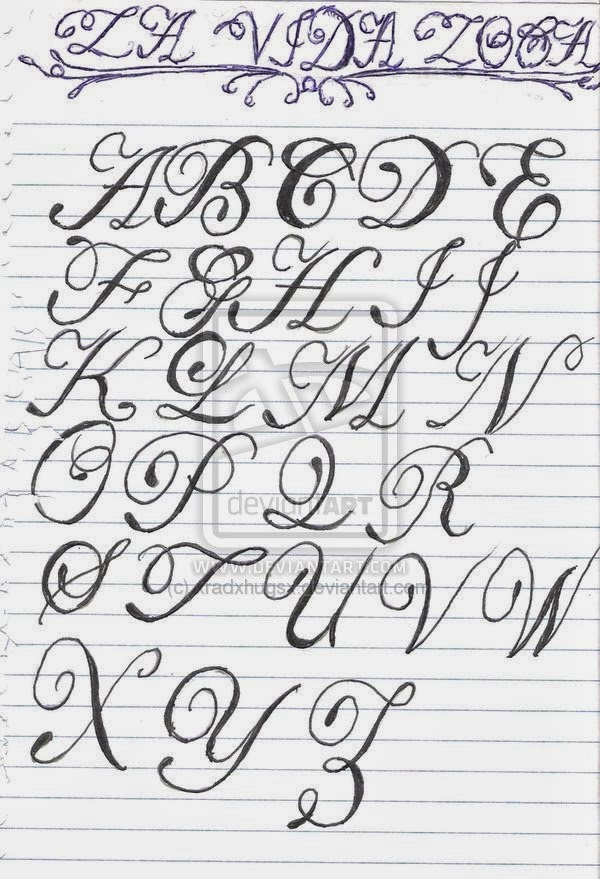 LA VIDA LOCA
A B C D E
F G H I J
K L M N
O P Q R
deviantART
S T U V W
WWW.DEVIANTART.COM
(c) xradxhugsx.deviantart.com
X Y Z